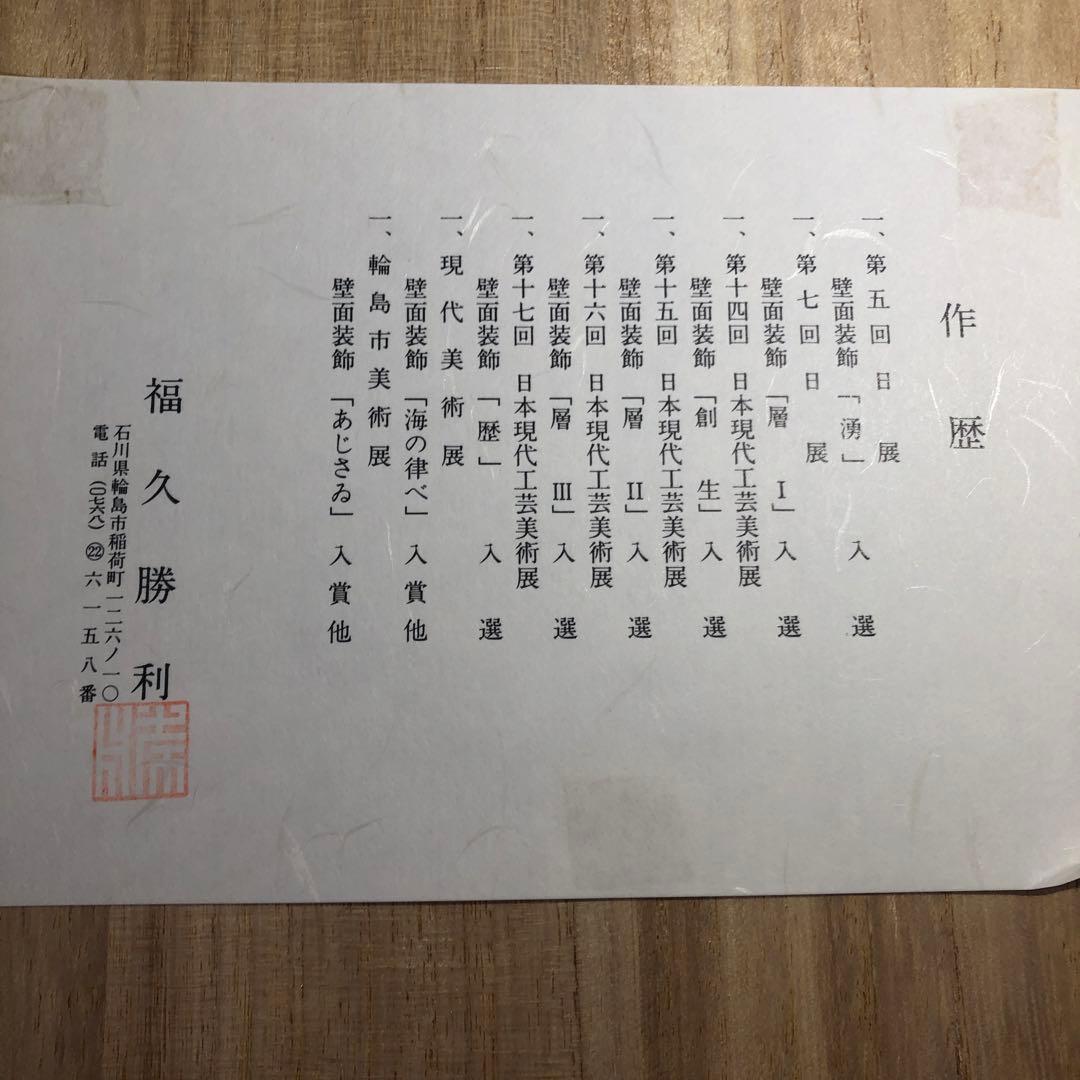 作歴
一、第五回 日展
壁面装飾「湧」 入選
一、第七回 日展
壁面装飾「層 Ⅰ」 入選
一、第十四回 日本現代工芸美術展
壁面装飾「創生」 入選
一、第十五回 日本現代工芸美術展
壁面装飾「層 Ⅱ」 入選
一、第十六回 日本現代工芸美術展
壁面装飾「層 Ⅲ」 入選
一、第十七回 日本現代工芸美術展
壁面装飾「歴」 入選
一、現代美術展
壁面装飾「海の律べ」 入賞他
一、輪島市美術展
壁面装飾「あじさゐ」 入賞他
福久勝利
石川県輪島市稲荷町一二六ノ一〇
電話(〇七六八)㉒六一五八番